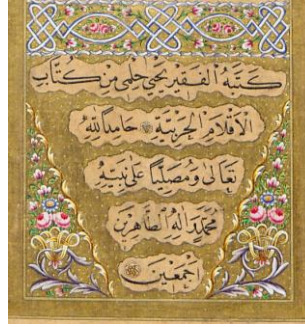 كتبه الفقير يحيى حلمى من كتاب
الاقلام الحربية حامدا لله
تعالى ومصليا على نبيه
محمد وآله الطاهرين
اجمعين